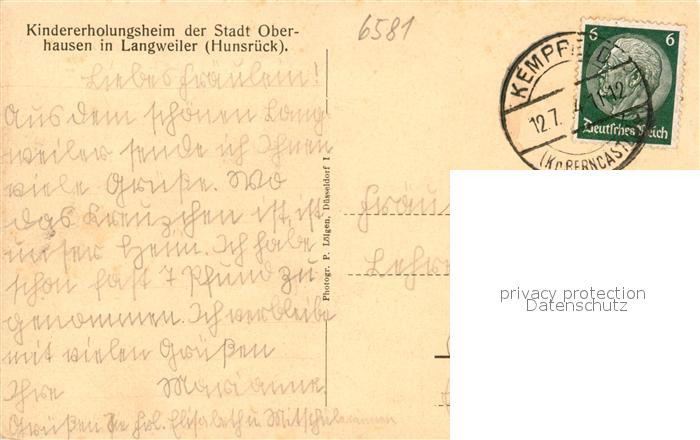 Kindererholungsheim der Stadt Ober-
hausen in Langweiler (Hunsrück).
6581
Liebes Fräulein!
Aus dem schönen Lang-
weiler sende ich Ihnen
viele Grüße. Wo
das Kreuzchen ist, ist
unser Heim. Ich habe
schon fast 7 Pfund zu
genommen. Ich verbleibe
mit vielen Grüßen
Ihre Marianne
Grüßen Sie Frl. Elisabeth u Mitschülerinnen
Photogr. P. Lölgen, Düsseldorf 1
KEMPFELD
12.7. 11-12
(KR. BERNCASTEL)
6 6
Deutsches Reich
Fräu
Lehre
privacy protection
Datenschutz